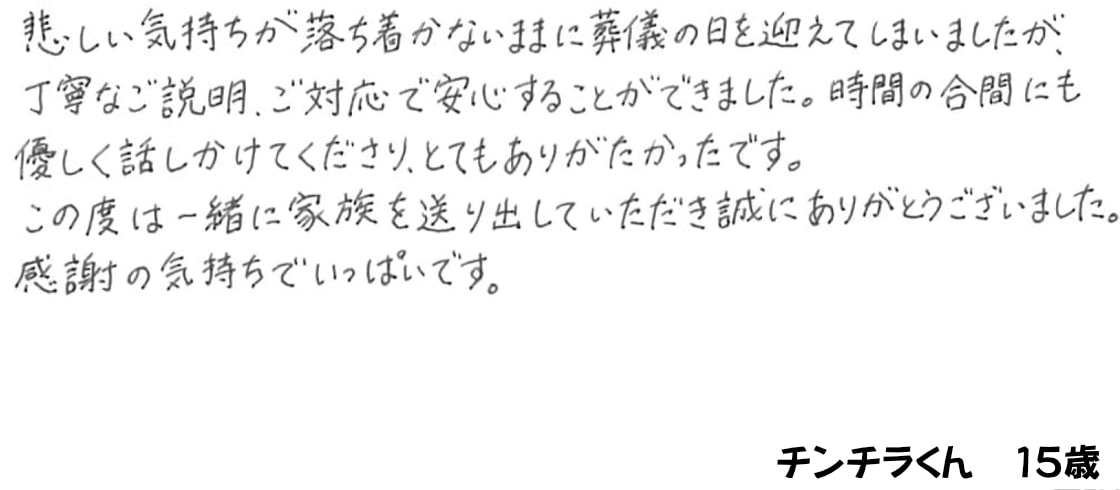 悲しい気持ちが落ち着かないままに葬儀の日を迎えてしまいましたが、
丁寧なご説明、ご対応で安心することができました。時間の合間にも
優しく話しかけてくださり、とてもありがたかったです。
この度は一緒に家族を送り出していただき誠にありがとうございました。
感謝の気持ちでいっぱいです。
チンチラくん　15歳